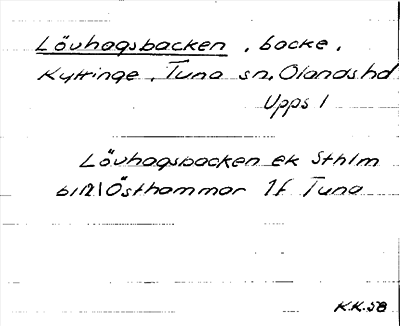 Lövhagsbacken, backe,
Kyttinge, Tuna sn, Olands hd
Upps l
Lövhagsbacken ek Sthlm
Östhammar 1f Tuna
K.K.58